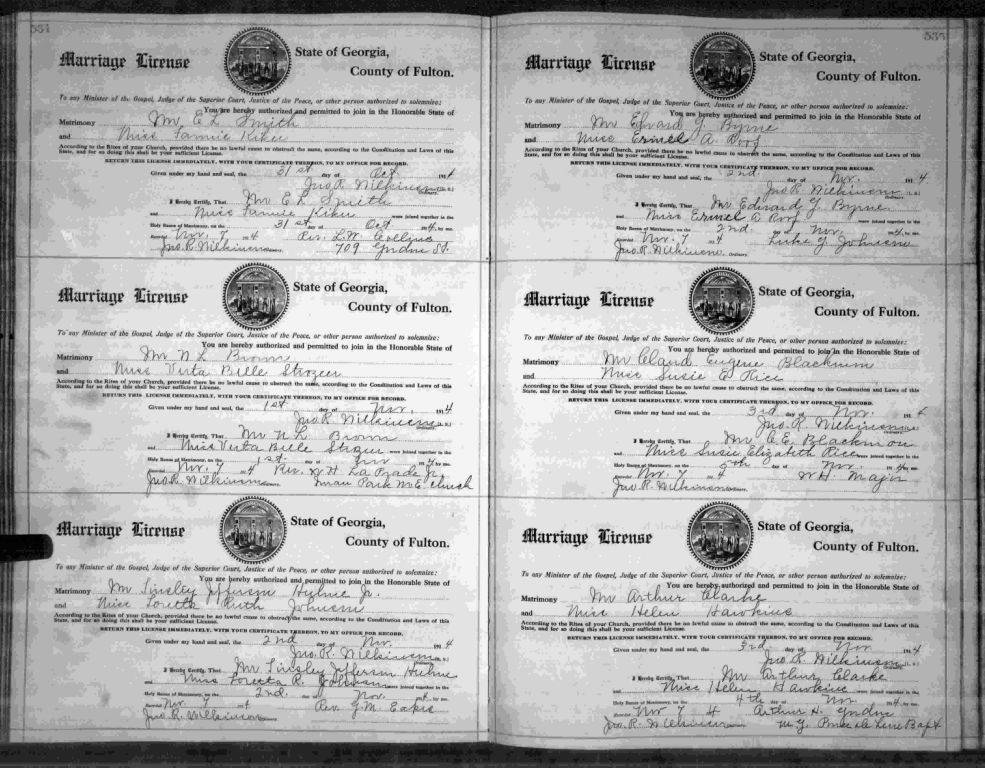 554
Marriage License
State of Georgia,
County of Fulton.
To any Minister of the Gospel, Judge of the Superior Court, Justice of the Peace, or other person authorized to solemnize:
You are hereby authorized and permitted to join in the Honorable State of
Matrimony Mr E L Smith
and Miss Fannie
According to the Rites of your Church, provided there be no lawful cause to obstruct the same, according to the Constitution and Laws of this
State, and for so doing this shall be your sufficient License.
RETURN THIS LICENSE IMMEDIATELY, WITH YOUR CERTIFICATE THEREON, TO MY OFFICE FOR RECORD.
Given under my hand and seal, the 31st day of Oct 1914
Jno. R. Wilkinson
Ordinary.
I Hereby Certify, That Mr E L Smith
and Miss Fannie were joined together in the
Holy Banns of Matrimony, on the 31st day of Oct 1914, by me.
Recorded Nov. 7 1914 Rev. L. W. Collins
Jno. R. Wilkinson Ordinary. 709 St.
Marriage License
State of Georgia,
County of Fulton.
To any Minister of the Gospel, Judge of the Superior Court, Justice of the Peace, or other person authorized to solemnize:
You are hereby authorized and permitted to join in the Honorable State of
Matrimony Mr N L Brown
and Miss Verta Belle Strozier
According to the Rites of your Church, provided there be no lawful cause to obstruct the same, according to the Constitution and Laws of this
State, and for so doing this shall be your sufficient License.
RETURN THIS LICENSE IMMEDIATELY, WITH YOUR CERTIFICATE THEREON, TO MY OFFICE FOR RECORD.
Given under my hand and seal, the 1st day of Nov. 1914
Jno. R. Wilkinson
Ordinary.
I Hereby Certify, That Mr N L Brown
and Miss Verta Belle Strozier were joined together in the
Holy Banns of Matrimony, on the 1st day of Nov 1914, by me.
Recorded Nov. 7 1914 Rev. W H La Prade Jr.
Jno. R. Wilkinson Ordinary. Inman Park M E church
Marriage License
State of Georgia,
County of Fulton.
To any Minister of the Gospel, Judge of the Superior Court, Justice of the Peace, or other person authorized to solemnize:
You are hereby authorized and permitted to join in the Honorable State of
Matrimony Mr Tinsley Jefferson Jr.
and Miss Loretta Ruth Johnson
According to the Rites of your Church, provided there be no lawful cause to obstruct the same, according to the Constitution and Laws of this
State, and for so doing this shall be your sufficient License.
RETURN THIS LICENSE IMMEDIATELY, WITH YOUR CERTIFICATE THEREON, TO MY OFFICE FOR RECORD.
Given under my hand and seal, the 2nd day of Nov. 1914
Jno. R. Wilkinson
Ordinary.
I Hereby Certify, That Mr Tinsley Jefferson
and Miss Loretta R. Johnson were joined together in the
Holy Banns of Matrimony, on the 2nd. day of Nov. 1914, by me.
Recorded Nov 7 1914 Rev. J. M. Eakes
Jno R. Wilkinson Ordinary.
535
Marriage License
State of Georgia,
County of Fulton.
To any Minister of the Gospel, Judge of the Superior Court, Justice of the Peace, or other person authorized to solemnize:
You are hereby authorized and permitted to join in the Honorable State of
Matrimony Mr Edward J. Byrne
and Miss Ermel A.
According to the Rites of your Church, provided there be no lawful cause to obstruct the same, according to the Constitution and Laws of this
State, and for so doing this shall be your sufficient License.
RETURN THIS LICENSE IMMEDIATELY, WITH YOUR CERTIFICATE THEREON, TO MY OFFICE FOR RECORD.
Given under my hand and seal, the 2nd. day of Nov. 1914
Jno R. Wilkinson
Ordinary.
I Hereby Certify, That Mr Edward J. Byrne
and Miss Ermel A were joined together in the
Holy Banns of Matrimony, on the 2nd. day of Nov. 1914, by me.
Recorded Nov. 7 1914 Luke J Johnson
Jno. R. Wilkinson. Ordinary.
Marriage License
State of Georgia,
County of Fulton.
To any Minister of the Gospel, Judge of the Superior Court, Justice of the Peace, or other person authorized to solemnize:
You are hereby authorized and permitted to join in the Honorable State of
Matrimony Mr Claud Eugene Blackmon
and Miss Susie E Rice
According to the Rites of your Church, provided there be no lawful cause to obstruct the same, according to the Constitution and Laws of this
State, and for so doing this shall be your sufficient License.
RETURN THIS LICENSE IMMEDIATELY, WITH YOUR CERTIFICATE THEREON, TO MY OFFICE FOR RECORD.
Given under my hand and seal, the 3rd day of Nov. 1914
Jno. R. Wilkinson
Ordinary.
I Hereby Certify, That Mr C E Blackmon
and Miss Susie Elizabeth Rice were joined together in the
Holy Banns of Matrimony, on the 5th day of Nov. 1914, by me.
Recorded Nov. 7 1914 W H. Major
Jno R. Wilkinson Ordinary.
Marriage License
State of Georgia,
County of Fulton.
To any Minister of the Gospel, Judge of the Superior Court, Justice of the Peace, or other person authorized to solemnize:
You are hereby authorized and permitted to join in the Honorable State of
Matrimony Mr Arthur Clarke
and Miss Helen Hawkins
According to the Rites of your Church, provided there be no lawful cause to obstruct the same, according to the Constitution and Laws of this
State, and for so doing this shall be your sufficient License.
RETURN THIS LICENSE IMMEDIATELY, WITH YOUR CERTIFICATE THEREON, TO MY OFFICE FOR RECORD.
Given under my hand and seal, the 3rd day of Nov 1914
Jno R Wilkinson
Ordinary.
I Hereby Certify, That Mr Arthur Clarke
and Miss Helen Hawkins were joined together in the
Holy Banns of Matrimony, on the 4th day of Nov 1914, by me.
Recorded Nov 7 1914 Arthur H.
Jno. R. Wilkinson Ordinary. M. G. Ponce De Leon Bapt